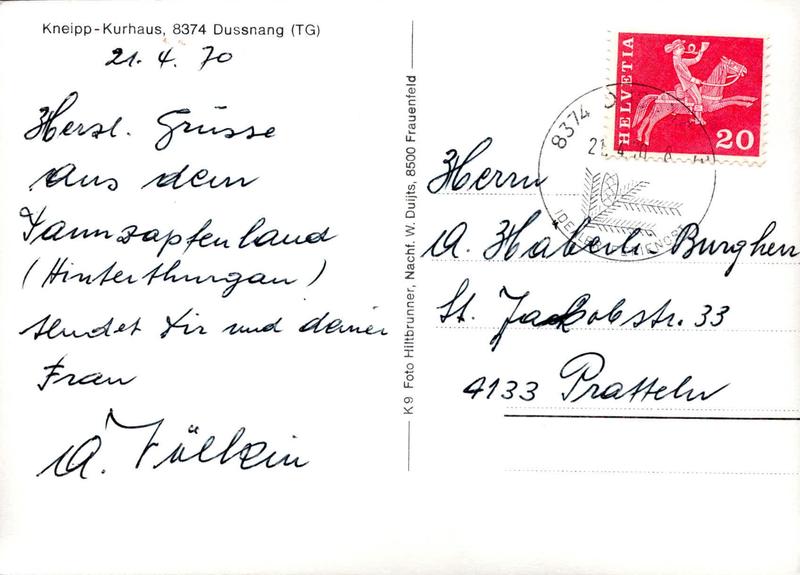 Kneipp-Kurhaus, 8374 Dussnang (TG)
21. 4. 70
Herzl. Grüsse
aus dem
Tannzapfenland
(Hinterthurgau)
sendet Dir und deiner
Frau
A. Völkin
K 9 Foto Hiltbrunner, Nachf. W. Duijts, 8500 Frauenfeld
HELVETIA
20
8374
Herrn
A. Häberli-Burgherr
St. Jackobstr. 33
4133 Pratteln